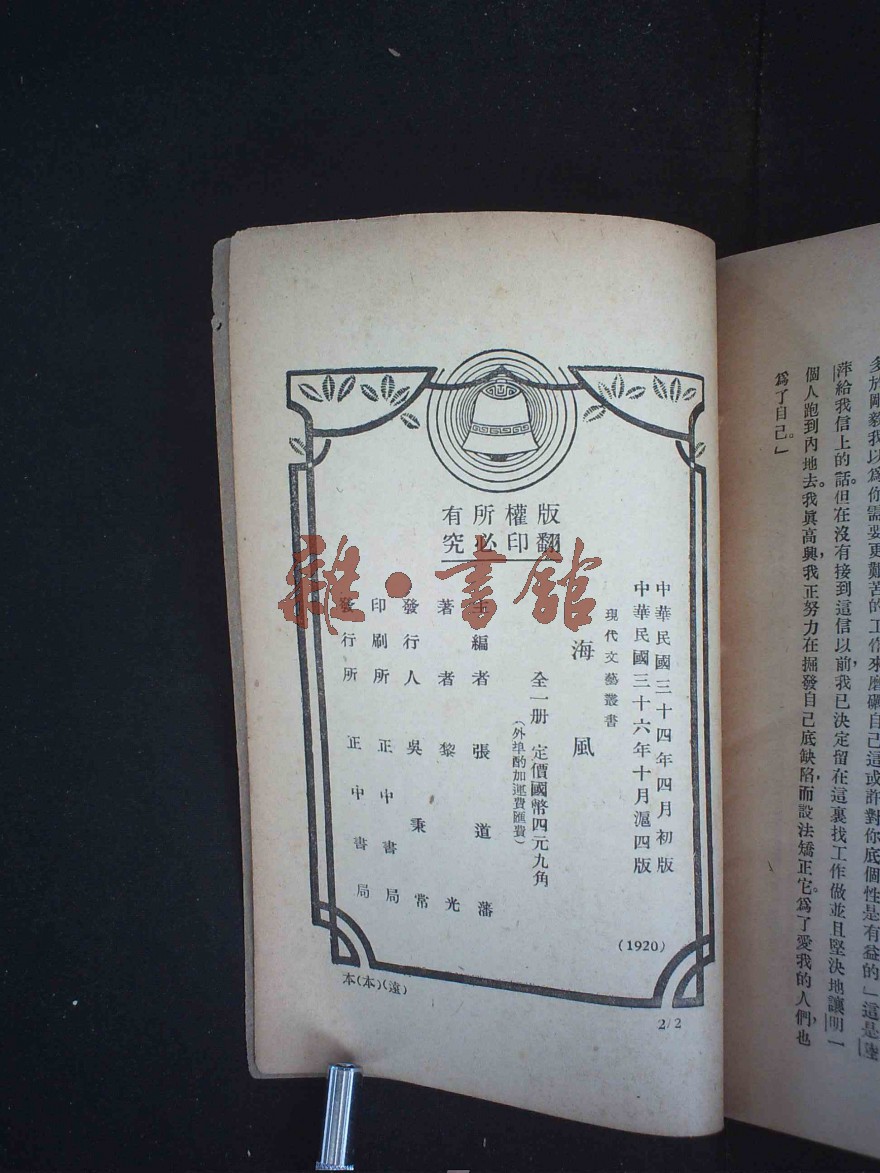 版權所有
翻印必究
中華民國三十四年四月初版
中華民國三十六年十月滬四版
現代文藝叢書
海風
全一册 定價國幣四元九角
(外埠酌加運費匯費)
主編者 張道藩
著者 黎光
發行人 吳秉常
印刷所 正中書局
發行所 正中書局
(1920)
本(本)(遠)
2/2
雜·書館
多於剛毅我以爲你需要更艱苦的工作來磨礪自己這或許對你底個性是有益的」這是
萍給我信上的話。但在沒有接到這信以前,我已決定留在這裏找工作做並且堅決地讓明一
個人跑到內地去。我眞高興,我正努力在掘發自己底缺陷,而設法矯正它。爲了愛我的人們,也
爲了自己。」